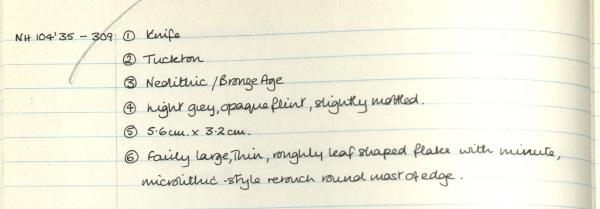 NH 104'35 - 309 ① Knife
② Tuckton
③ Neolithic / Bronze Age
④ Light grey, opaque flint, slightly mottled.
⑤ 5.6cm. x 3.2cm.
⑥ Fairly large, thin, roughly leaf shaped flake with minute,
microlithic-style retouch round most of edge.